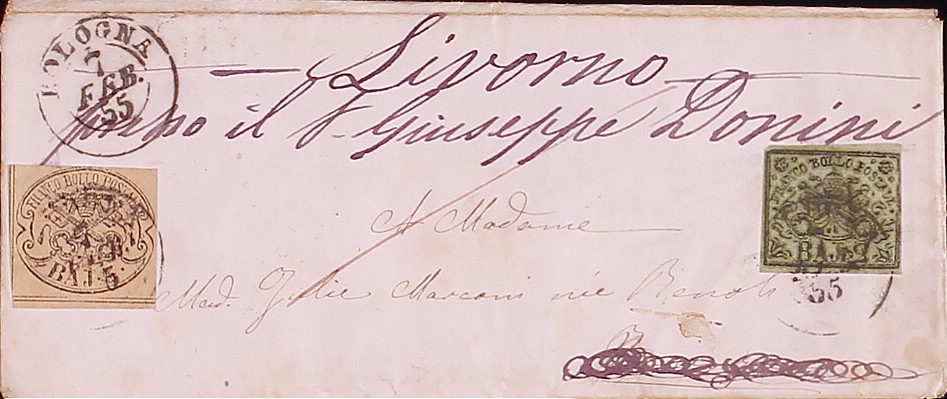 BOLOGNA
7
FEB.
55
Livorno
il S. Giuseppe Donini
FRANCO BOLLO POSTALE
BAJ. 5
FRANCO BOLLO POSTALE
BAJ. 2
55
A Madame
Mad. Julie Marconi née